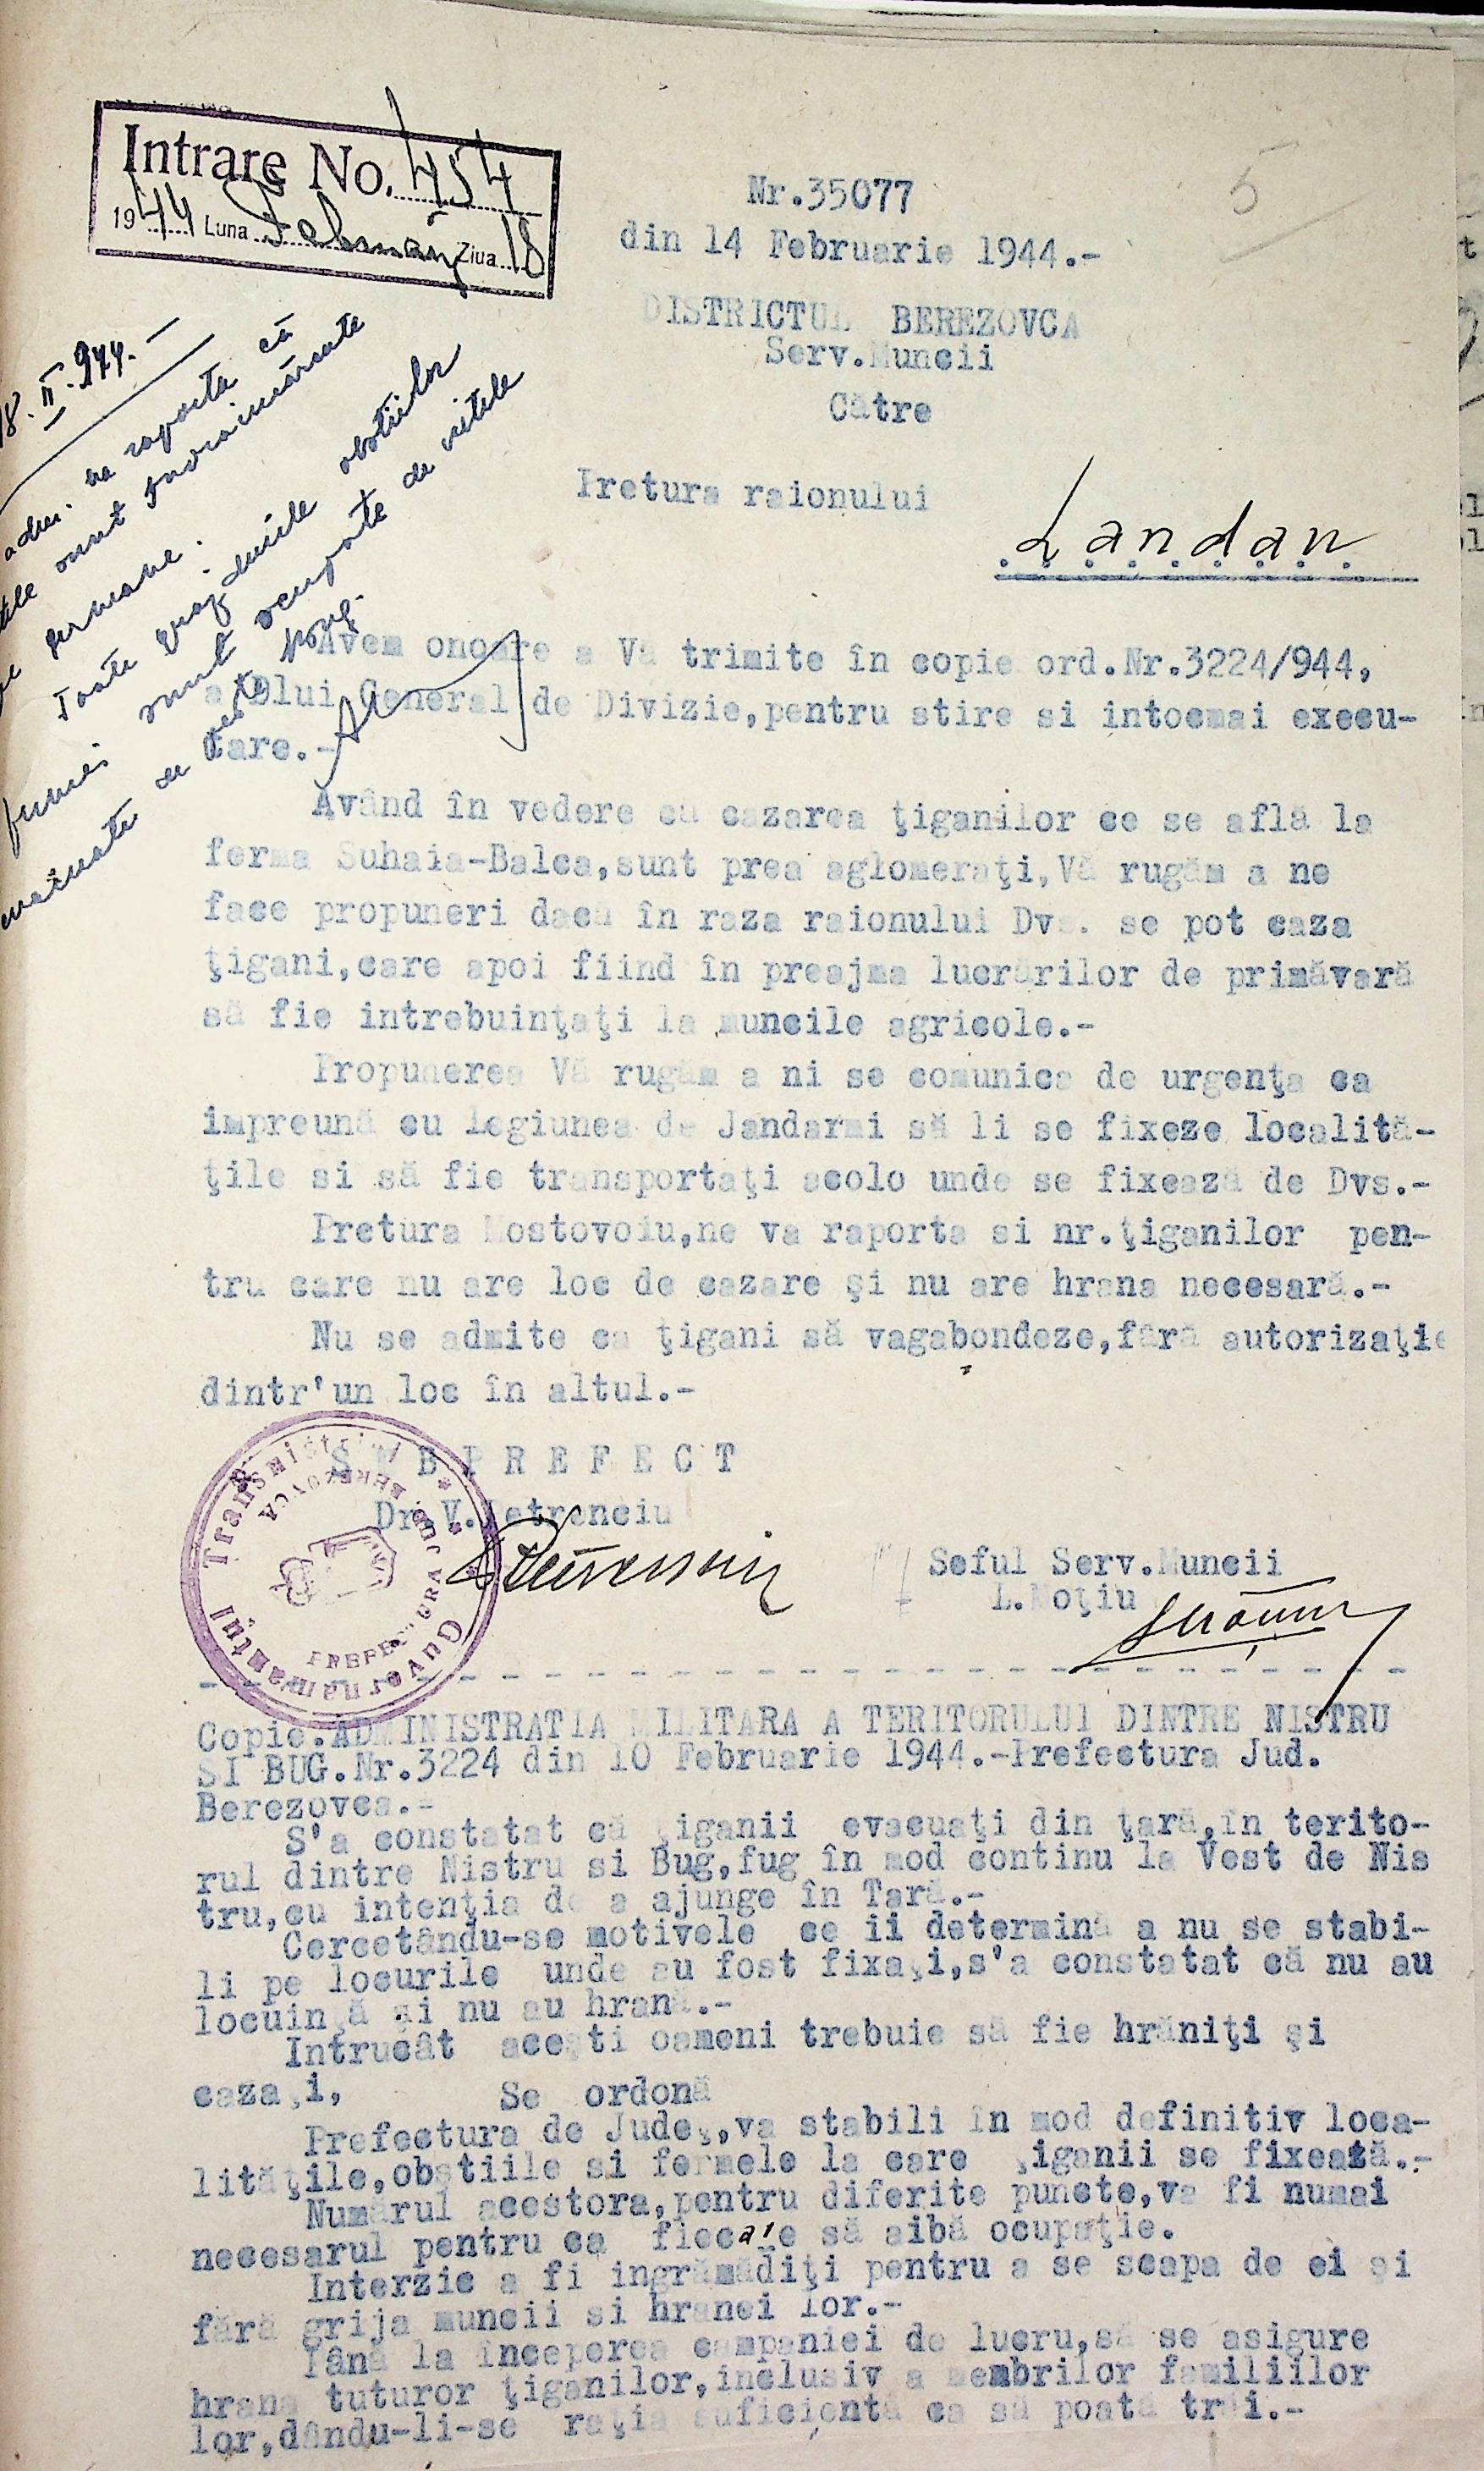 Intrare No. 454
1944 Luna Februarie Ziua 18
5
Nr.35077
din 14 Februarie 1944.-
DISTRICTUL BEREZOVCA
Serv.Muncii
Către
Pretura raionului
Landau
18.II.944.-
se raporta că
sunt încvaimărcate
germane.
Toate grajdurile obstiilor
sunt ocupate de vitele
Avem onoare a Vă trimite în copie ord.Nr.3224/944,
a Dlui General de Divizie,pentru stire si intocmai execu-
tare.-
Având în vedere că cazarea ţiganilor ce se află la
ferma Suhaia-Balca,sunt prea aglomeraţi,Vă rugăm a ne
face propuneri dacă în raza raionului Dvs. se pot caza
ţigani,care apoi fiind în preajma lucrărilor de primăvară
să fie intrebuinţaţi la muncile agricole.-
Propunerea Vă rugăm a ni se comunica de urgenţa ca
impreună cu Legiunea de Jandarmi să li se fixeze localită-
ţile si să fie transportaţi acolo unde se fixează de Dvs.-
Pretura Mostovoiu,ne va raporta si nr.ţiganilor pen-
tru care nu are loc de cazare şi nu are hrana necesară.-
Nu se admite ca ţigani să vagabondeze,fără autorizaţie
dintr'un loc în altul.-
SUBPREFECT
Dr.V.Petrenciu
Guvernamantul Transnistriei
PREFECTURA JUD. BEREZOVCA
Seful Serv.Muncii
L.Moţiu
Copie.ADMINISTRATIA MILITARA A TERITORULUI DINTRE NISTRU
SI BUG.Nr.3224 din 10 Februarie 1944.-Prefectura Jud.
Berezovca.-
S'a constatat că ţiganii evacuaţi din ţară,în terito-
rul dintre Nistru si Bug,fug în mod continu la Vest de Nis
tru,cu intenţia de a ajunge în Tară.-
Cercetându-se motivele ce ii determină a nu se stabi-
li pe locurile unde au fost fixaţi,s'a constatat că nu au
locuinţă şi nu au hrană.-
Intrucât aceşti oameni trebuie să fie hrăniţi şi
cazaţi, Se ordonă
Prefectura de Judeţ,va stabili în mod definitiv loca-
lităţile,obstiile si fermele la care ţiganii se fixează.-
Numărul acestora,pentru diferite puncte,va fi numai
necesarul pentru ca fiecare să aibă ocupaţie.
Interzic a fi ingrămădiţi pentru a se scapa de ei şi
fără grija muncii si hranei lor.-
Până la începerea campaniei de lucru,să se asigure
hrana tuturor ţiganilor,inclusiv a membrilor familiilor
lor,dându-li-se raţia suficientă ca să poată trăi.-